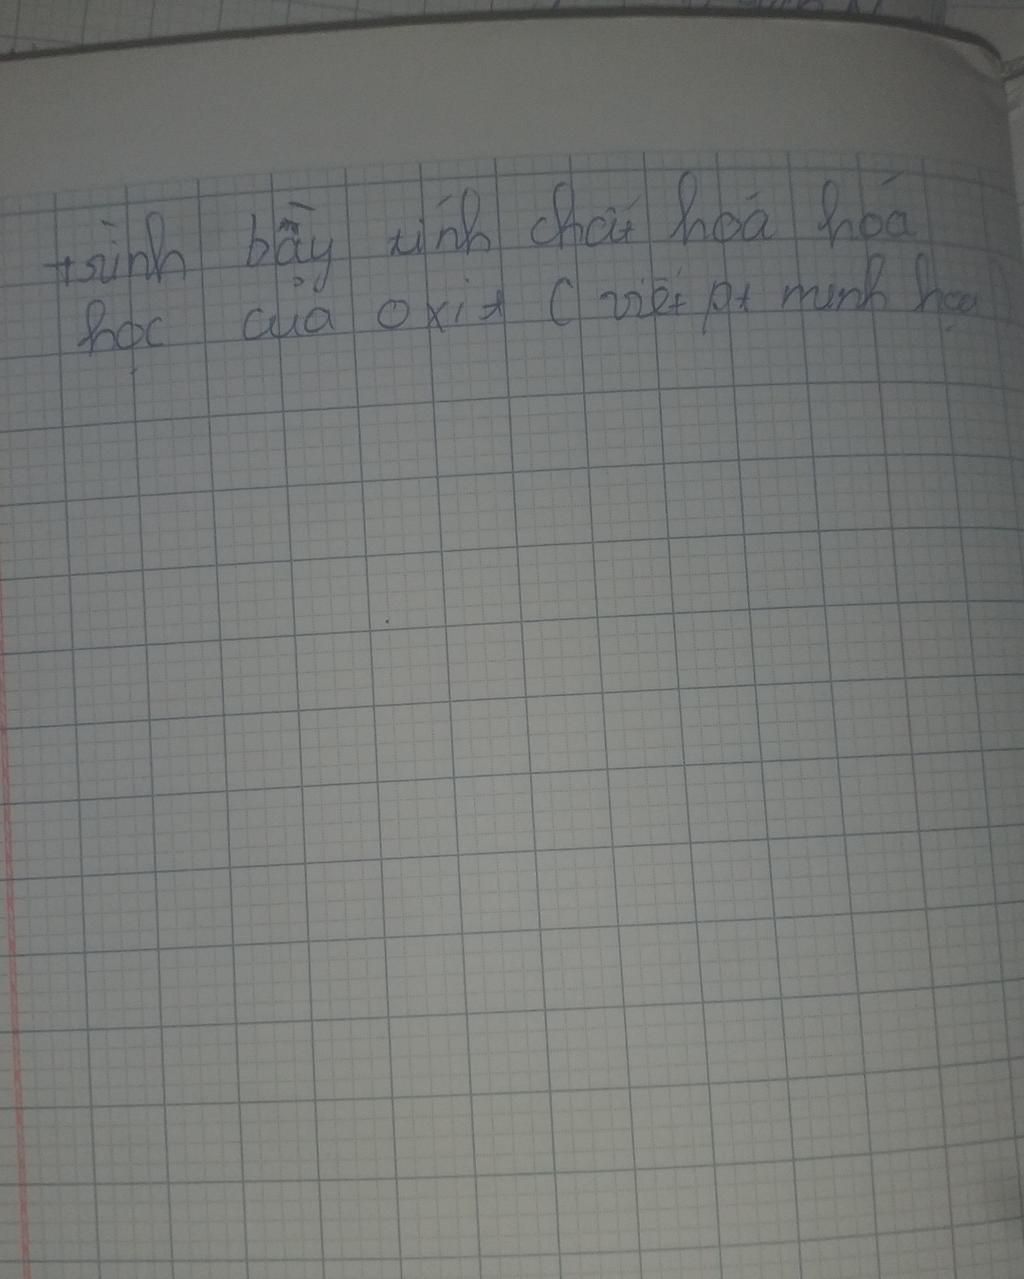 trình bầy tính chất hoá hóa
học của oxit ( viết pt minh hoạ